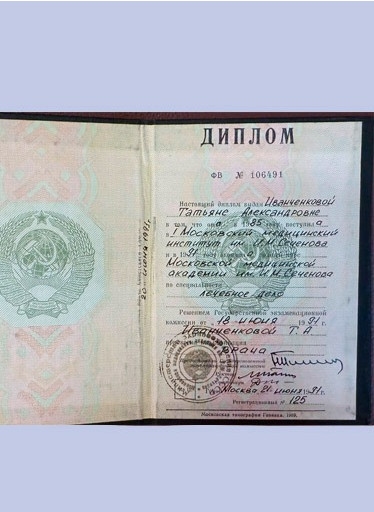 ДИПЛОМ
ФВ № 106491
Настоящий диплом выдан Иванченковой
Татьяне Александровне
в том, что она в 1985 году поступила в
I Московский медицинский
институт им. И.М. Сеченова
и в 1991 году окончила полный курс
Московской медицинской
академии им. И.М. Сеченова
по специальности
лечебное дело
Решением Государственной экзаменационной
комиссии от 18 июня 1991 г.
Иванченковой Т. А.
врача
Москва 21 июня 1991 г.
Регистрационный № 125
Московская типография Гознака. 1989.
20 июня 1991г.